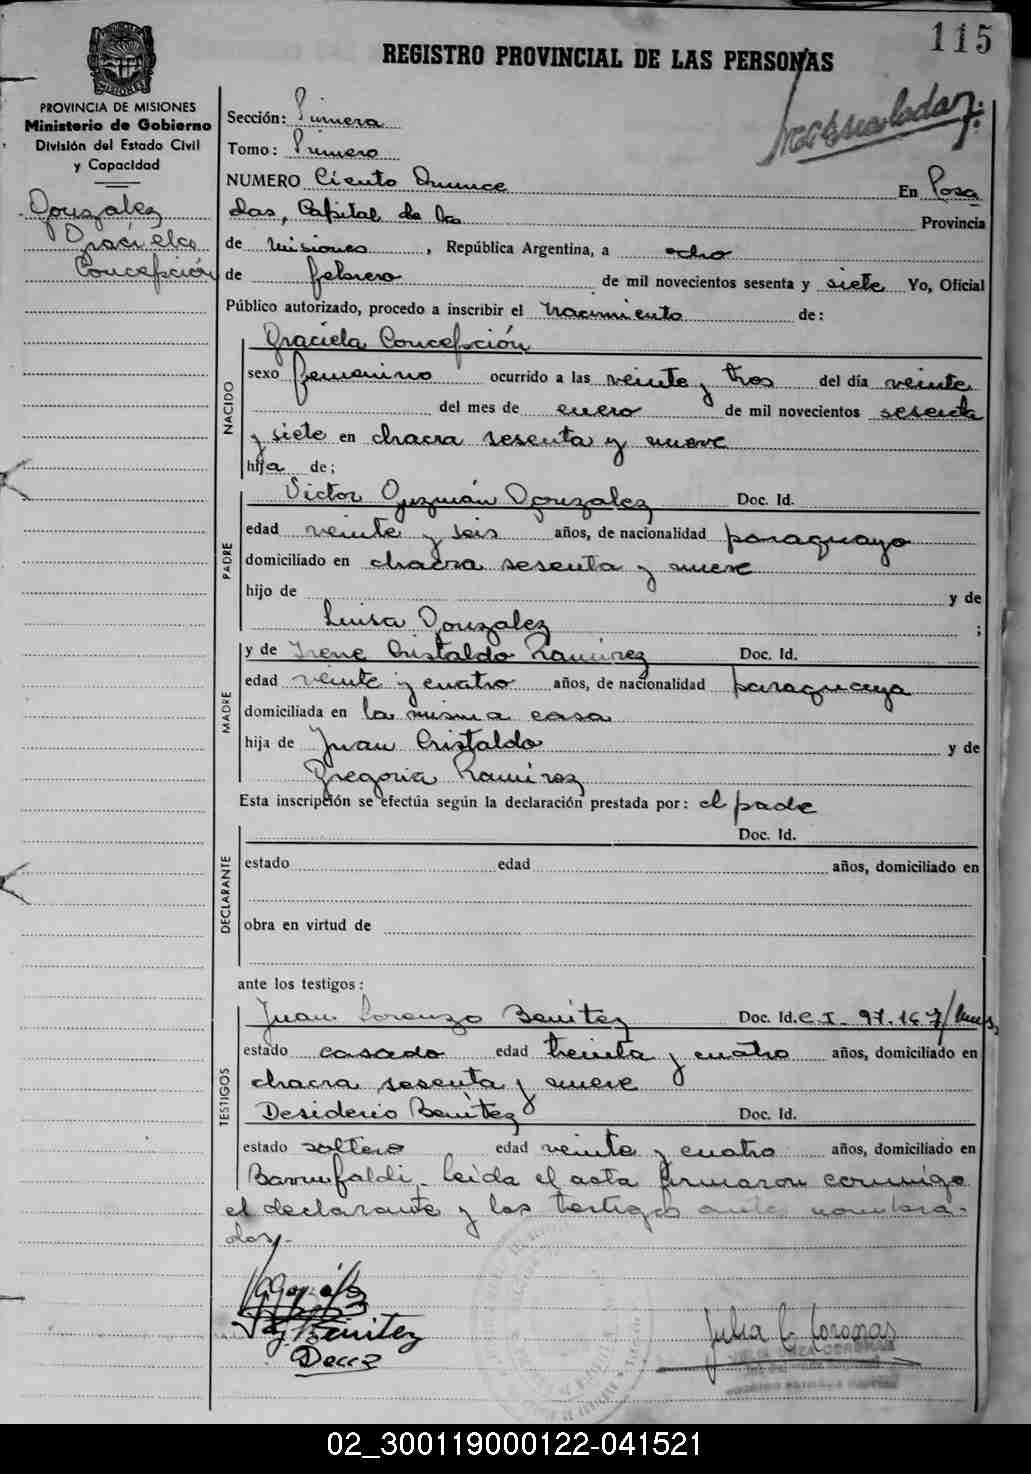 115
REGISTRO PROVINCIAL DE LAS PERSONAS
PROVINCIA DE MISIONES
Ministerio de Gobierno
División del Estado Civil
y Capacidad
Gonzalez
Graciela
Concepción
Sección: Primera
Tomo: Primero
NUMERO Ciento Quince En Posa
das, Capital de la Provincia
de Misiones, República Argentina, a ocho
de febrero de mil novecientos sesenta y siete Yo, Oficial
Público autorizado, procedo a inscribir el nacimiento de:
NACIDO
Graciela Concepción
sexo femenino ocurrido a las veinte y tres del día veinte
del mes de enero de mil novecientos sesenta
y siete en chacra sesenta y nueve
hija de;
PADRE
Victor Guzmán Gonzalez Doc. Id.
edad veinte y seis años, de nacionalidad paraguayo
domiciliado en chacra sesenta y nueve
hijo de y de
Luisa Gonzalez ;
MADRE
y de Irene Cristaldo Ramírez Doc. Id.
edad veinte y cuatro años, de nacionalidad paraguaya
domiciliada en la misma casa
hija de Juan Cristaldo y de
Gregoria Ramírez
Esta inscripción se efectúa según la declaración prestada por: el padre
DECLARANTE
Doc. Id.
estado edad años, domiciliado en
obra en virtud de
ante los testigos:
TESTIGOS
Juan Lorenzo Benitez Doc. Id. C.I. 97.167/
estado casado edad treinta y cuatro años, domiciliado en
chacra sesenta y nueve
Desiderio Benítez Doc. Id.
estado soltero edad veinte y cuatro años, domiciliado en
leida el acta firmaron conmigo
el declarante y los testigos ante nombra-
dos.-
Benitez
Julia C. Coronas
02_300119000122-041521